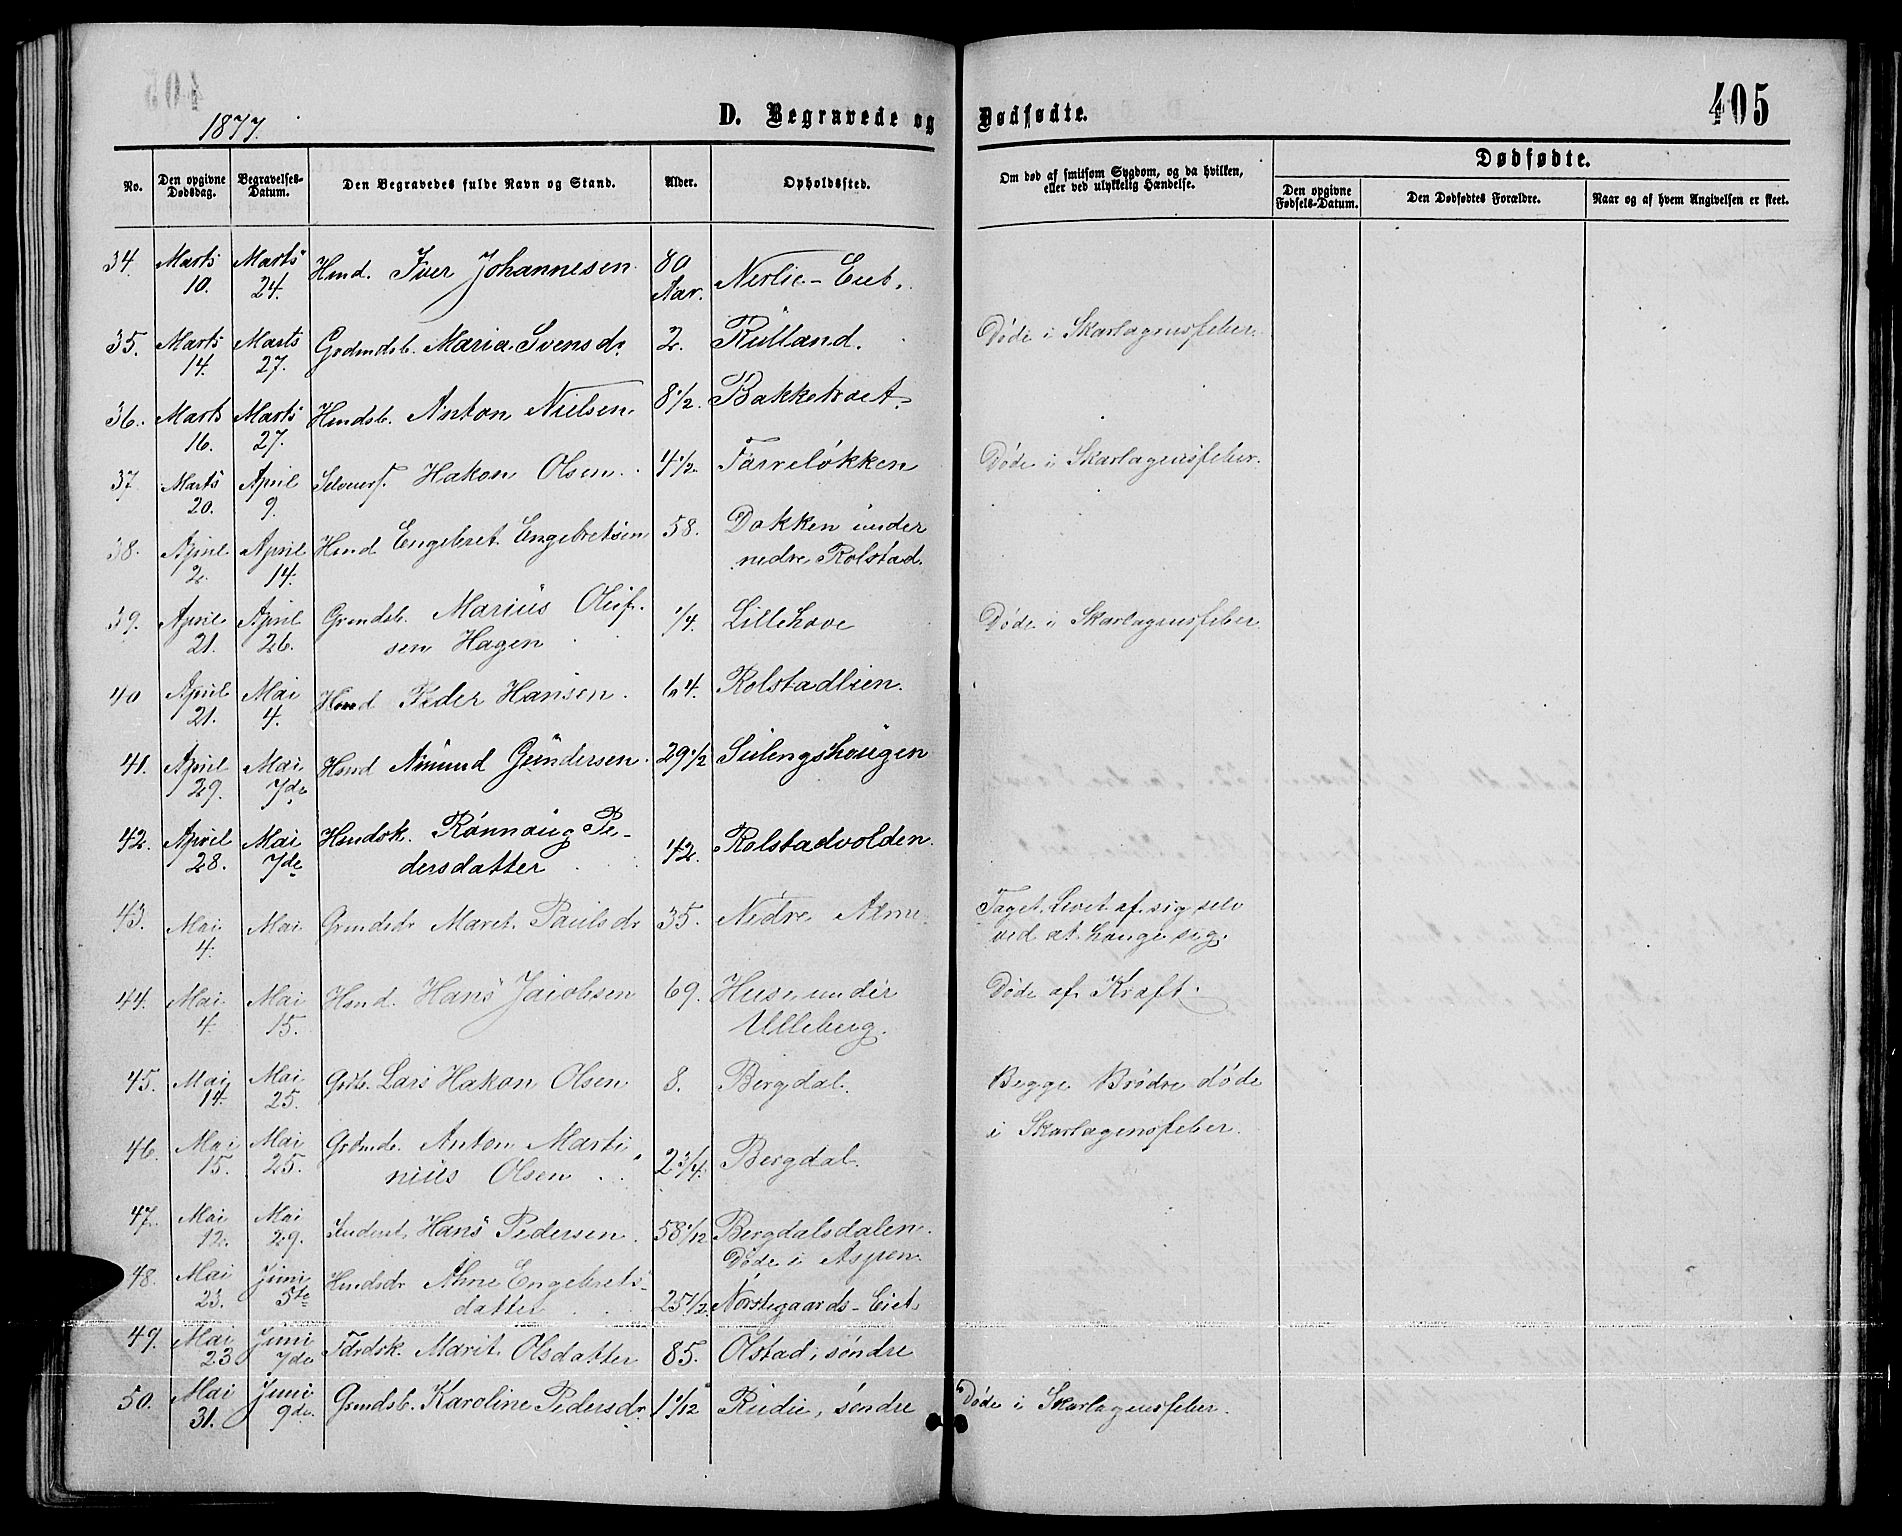 405
1877.
D. Begravede og Dødfødte.
No.
Den opgivne Dødsdag.
Begravelses-Datum.
Den Begravedes fulde Navn og Stand.
Alder.
Opholdssted.
Om død af smitsom Sygdom, og da hvilken, eller ved ulykkelig Hændelse.
Dødfødte.
Den opgivne Fødsels-Datum.
Den Dødfødtes Forældre.
Naar og af hvem Angivelsen er skeet.
34. Marts 10. Marts 24. Hmd. Iver Johannesen 80 Aar. Nerlie-Eiet.
35. Marts 14. Marts 27. Grdmdsb. Maria Svensdr. 2. Rulland. Døde i Skarlagensfeber.
36. Marts 16. Marts 27. Hmdsb. Anton Nielsen 8 1/2. Bakketræet.
37 Marts 20. April 9. Selveiersf. Hakon Olsen 4 1/2. Tørreløkken Døde i Skarlagensfeber.
38. April 2. April 14. Hmd Engebret Engebretsen 58. Dokken under
nedre Rolstad.
39. April 21. April 26. Grmdsb. Marius Oluf-
sen Hagen 1/4. Lillehove Døde i Skarlagensfeber
40 April 21. Mai 4. Hmd Peder Hansen. 64. Rolstadlien.
41. April 29. Mai 7de Hmd Amund Gundersen. 29 1/2 Sulengshaugen
42. April 28. Mai 7de Hmdsk. Rønnaug Pe-
dersdatter 42. Rolstadvolden.
43. Mai 4. Mai Grmdsdr Maret Paulsdr 35. Nedre Alme. Taget Livet af sig selv
ved at hænge sig.
44. Mai 4. Mai 15. Hmd. Hans Jacobsen 69. Huse under
Ulleberg. Døde af Kræft.
45. Mai 14. Mai 25. Grdb. Lars Hakon Olsen 8. Bergdal. Begge Brødre døde
i Skarlagensfeber.
46. Mai 15. Mai 25. Grdmds. Anton Marti-
nius Olsen 2 3/4. Bergdal.
47. Mai 12. Mai 29. Inderst, Hans Pedersen. 58 1/12 Bergdalsdalen.
Døde i Aspen.
48. Mai 23. Juni 5te Hmdsdr Anne Engebrets-
datter 25 1/2 Norstegaards-Eiet.
49. Mai 23 Juni 7de Fdrdsk. Marit Olsdatter 85. Olstad, søndre
50. Mai 31. Juni 9de. Grmdsb. Karoline Pedersdr. 1 1/12 Rudie, søndre Døde i Skarlagensfeber.